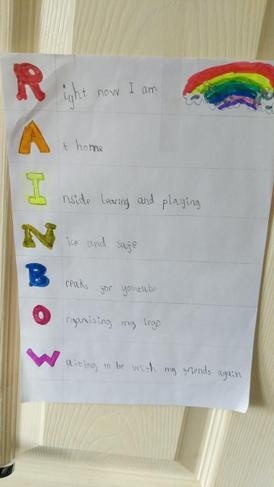 Right now I am
At home
Inside learing and playing
Nice and safe
Breads for youtube
Organising my lego
Waiting to be with my friends again